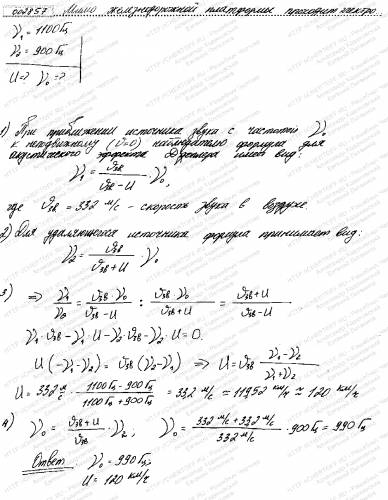 002857 Мимо железнодорожной платформы проходит электро
ν₁ = 1100 Гц
ν₂ = 900 Гц
U=? ν₀=?
1) При приближении источника звука с частотой ν₀
к неподвижному (υ=0) наблюдателю формула для
акустического эффекта Доплера имеет вид:
ν₁ = υзв / (υзв - U) · ν₀,
где υзв = 332 м/с - скорость звука в воздухе
2) Для удаляющегося источника формула принимает вид:
ν₂ = υзв / (υзв + U) · ν₀
3) ⇒ ν₁/ν₂ = υзв·ν₀ / (υзв - U) : υзв·ν₀ / (υзв + U) = (υзв + U) / (υзв - U)
ν₁·υзв - ν₁·U - ν₂·υзв - ν₂·U = 0.
U(-ν₁-ν₂) = υзв(ν₂-ν₁) ⇒ U = υзв (ν₁-ν₂) / (ν₁+ν₂)
U = 332 м/с · (1100 Гц - 900 Гц) / (1100 Гц + 900 Гц) = 33,2 м/с = 119,52 км/ч ≈ 120 км/ч
4) ν₀ = (υзв + U) / υзв · ν₂, ν₀ = (332 м/с + 33,2 м/с) / 332 м/с · 900 Гц = 990 Гц
Ответ ν₀ = 990 Гц;
U = 120 км/ч